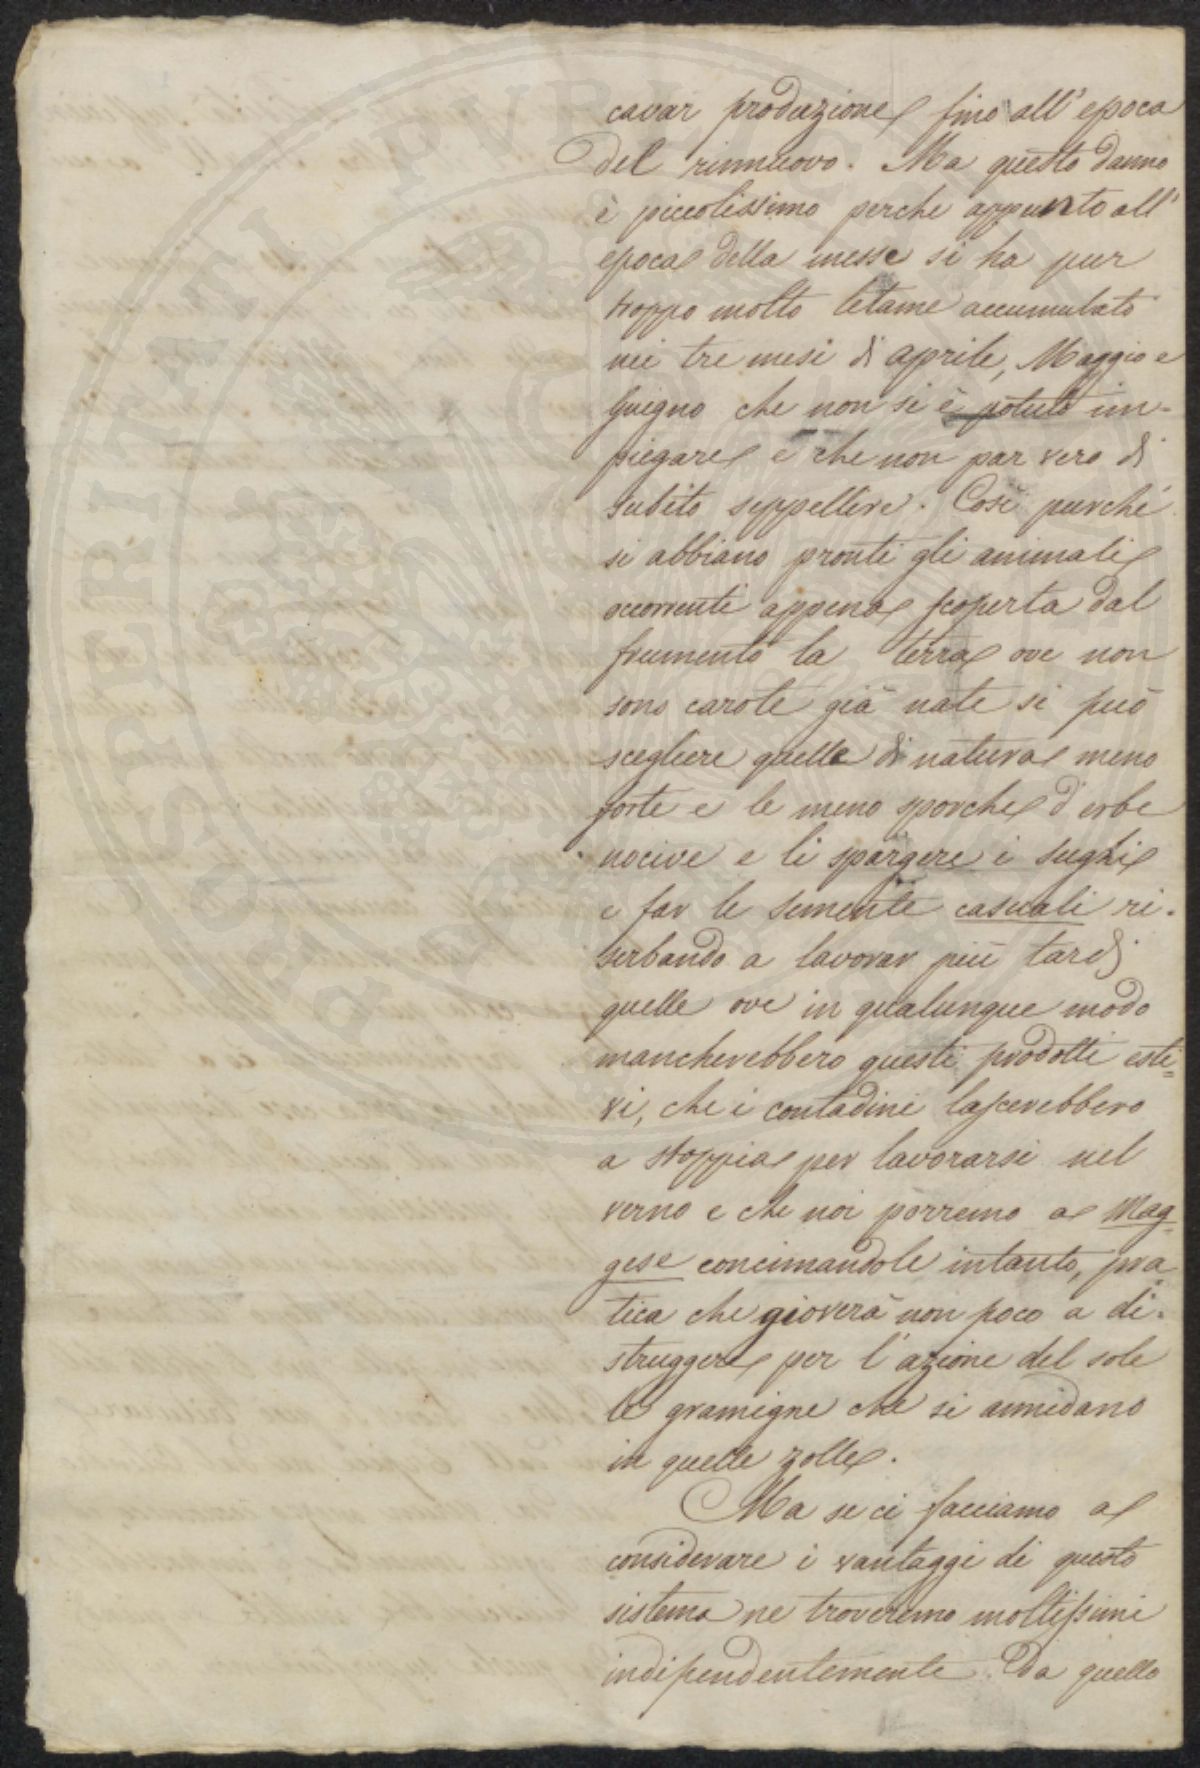 cavar produzione fino all'epoca
del rinnuovo. Ma questo danno
è piccolissimo perche appunto all'
epoca della messe si ha pur
troppo molto letame accumulato
nei tre mesi di aprile, Maggio e
Guigno che non si è potuto im-
piegare e che non par vero di
subito seppellire. Così purché
si abbiano pronti gli animali
occorrenti appena scoperta dal
frumento la terra ove non
sono carote già nate si può
scegliere quelle di natura meno
forte e le meno sporche d'erbe
nocive e li spargere i sughi
e far le semente casuali ri-
serbando a lavorar più tardi
quelle ove in qualunque modo
mancherebbero questi prodotti esti=
vi, che i contadini lascerebbero
a stoppia per lavorarsi nel
verno e che noi porremo a Mag-
gese concimandole intanto, pra-
tica che gioverà non poco a di-
struggere per l'azione del sole
le gramigne che si annidano
in quelle zolle.
Ma se ci facciamo a
considerare i vantaggi di questo
sistema ne troveremo moltissimi
indipendentemente da quello